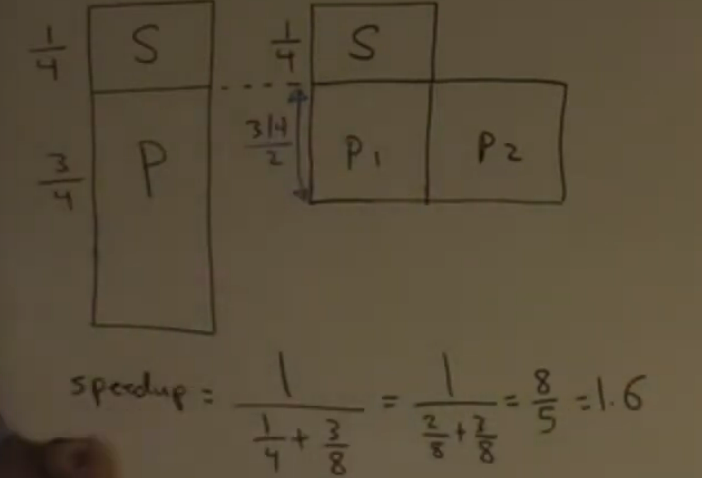 1/4 S 1/4 S
3/4 P 3/4/2 P1 P2
speedup = 1/(1/4 + 3/8) = 1/(2/8 + 3/8) = 8/5 = 1.6